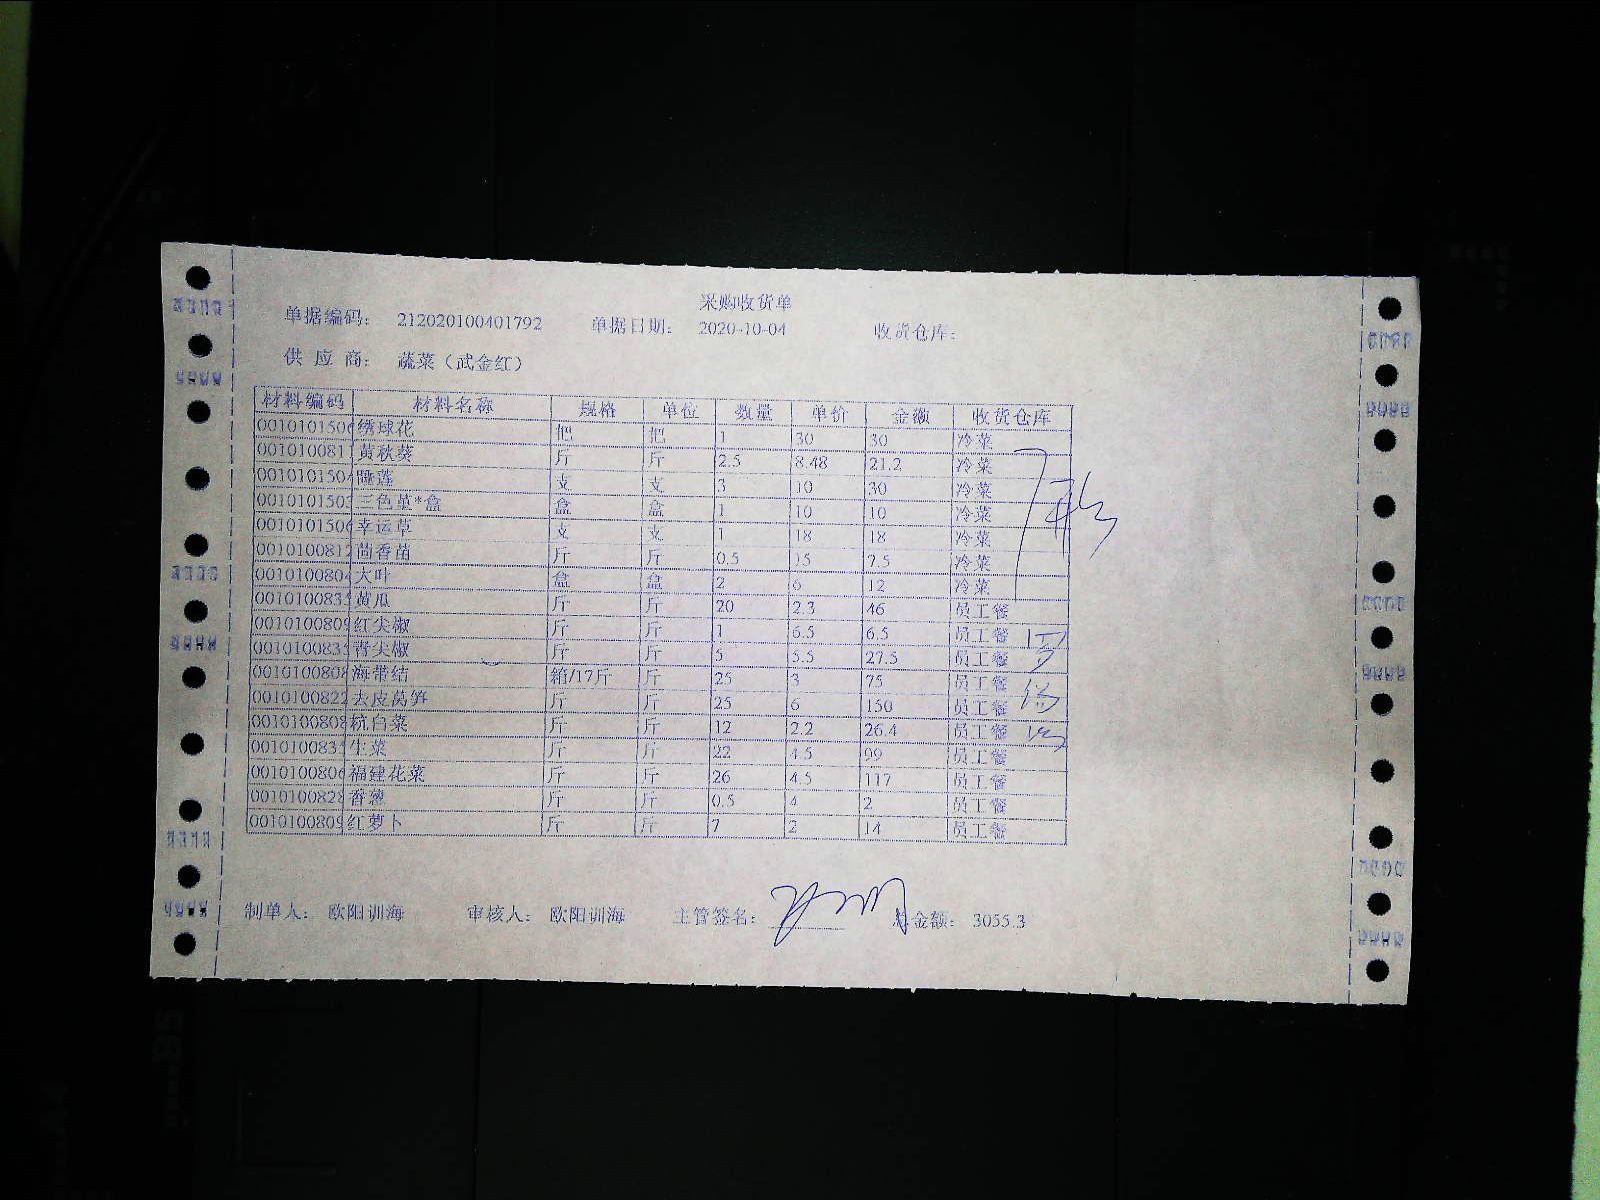 采购收货单
单据编码： 212020100401792 单据日期： 2020-10-04 收货仓库：
供 应 商： 蔬菜（武金红）
材料编码 材料名称 规格 单位 数量 单价 金额 收货仓库
0010101506 绣球花 把 把 1 30 30 冷菜
001010081 黄秋葵 斤 斤 2.5 8.48 21.2 冷菜
001010150 睡莲 支 支 3 10 30 冷菜
001010150 三色堇*盒 盒 盒 1 10 10 冷菜
0010101506 幸运草 支 支 1 18 18 冷菜
001010081 茴香苗 斤 斤 0.5 15 7.5 冷菜
001010080 大叶 盒 盒 2 6 12 冷菜
001010083 黄瓜 斤 斤 20 2.3 46 员工餐
001010080 红尖椒 斤 斤 1 6.5 6.5 员工餐
001010083 青尖椒 斤 斤 5 5.5 27.5 员工餐
0010100808 海带结 箱/17斤 斤 25 3 75 员工餐
0010100822 去皮莴笋 斤 斤 25 6 150 员工餐
0010100808 杭白菜 斤 斤 12 2.2 26.4 员工餐
001010083 生菜 斤 斤 22 4.5 99 员工餐
0010100806 福建花菜 斤 斤 26 4.5 117 员工餐
0010100828 香葱 斤 斤 0.5 4 2 员工餐
0010100809 红萝卜 斤 斤 7 2 14 员工餐
制单人： 欧阳训海 审核人： 欧阳训海 主管签名： 总金额： 3055.3